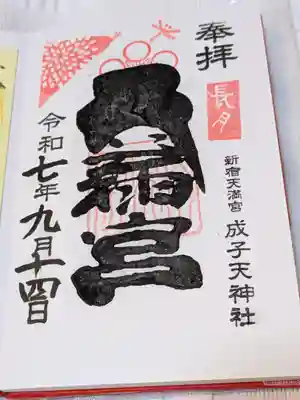 奉拝
長月
新宿天満宮
成子天神社
宮
令和七年九月十四日